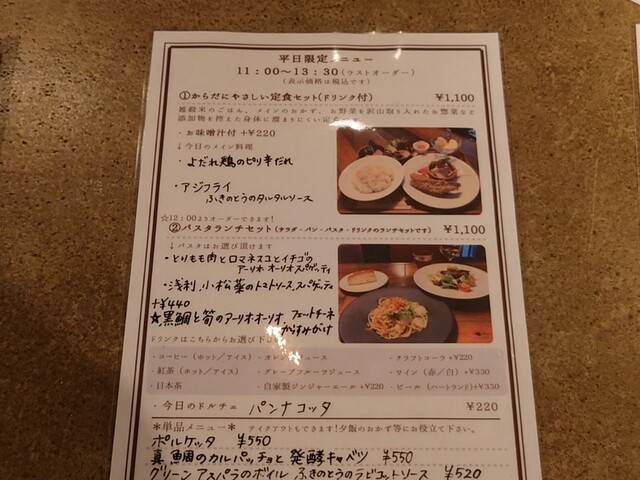 平日限定メニュー
11：00〜13：30(ラストオーダー)
(表示価格は税込です)
①からだにやさしい定食セット(ドリンク付) ¥1,100
雑穀米のごはん、メインのおかず、お野菜を沢山取り入れたお惣菜など
添加物を控えた身体に溜まりにくい定食
・お味噌汁付 +¥220
↓今日のメイン料理
・よだれ鶏のピリ辛だれ
・アジフライ
ふきのとうのタルタルソース
☆12：00よりオーダーできます!
②パスタランチセット(サラダ・パン・パスタ・ドリンクのランチセットです) ¥1,100
↓パスタはお選び頂けます
・とりもも肉とロマネスコとイチゴの
アーリオ オーリオスパゲッティ
・浅利、小松菜のトマトソース、スパゲッティ
+¥440
☆黒鯛と筍のアーリオオーリオ、フェットチーネ
からすみがけ
ドリンクはこちらからお選び下
・コーヒー(ホット／アイス) ・オレンジジュース ・クラフトコーラ+¥220
・紅茶(ホット／アイス) ・グレープフルーツジュース ・ワイン(赤／白)+¥330
・日本茶 ・自家製ジンジャーエール+¥220 ・ビール(ハートランド)+¥330
・今日のドルチェ パンナコッタ ¥220
＊単品メニュー＊ テイクアウトもできます!夕飯のおかず等にお役立て下さい。
ポルケッタ ¥550
真鯛のカルパッチョと発酵キャベツ ¥550
グリーンアスパラのボイル ふきのとうのラビゴットソース ¥520